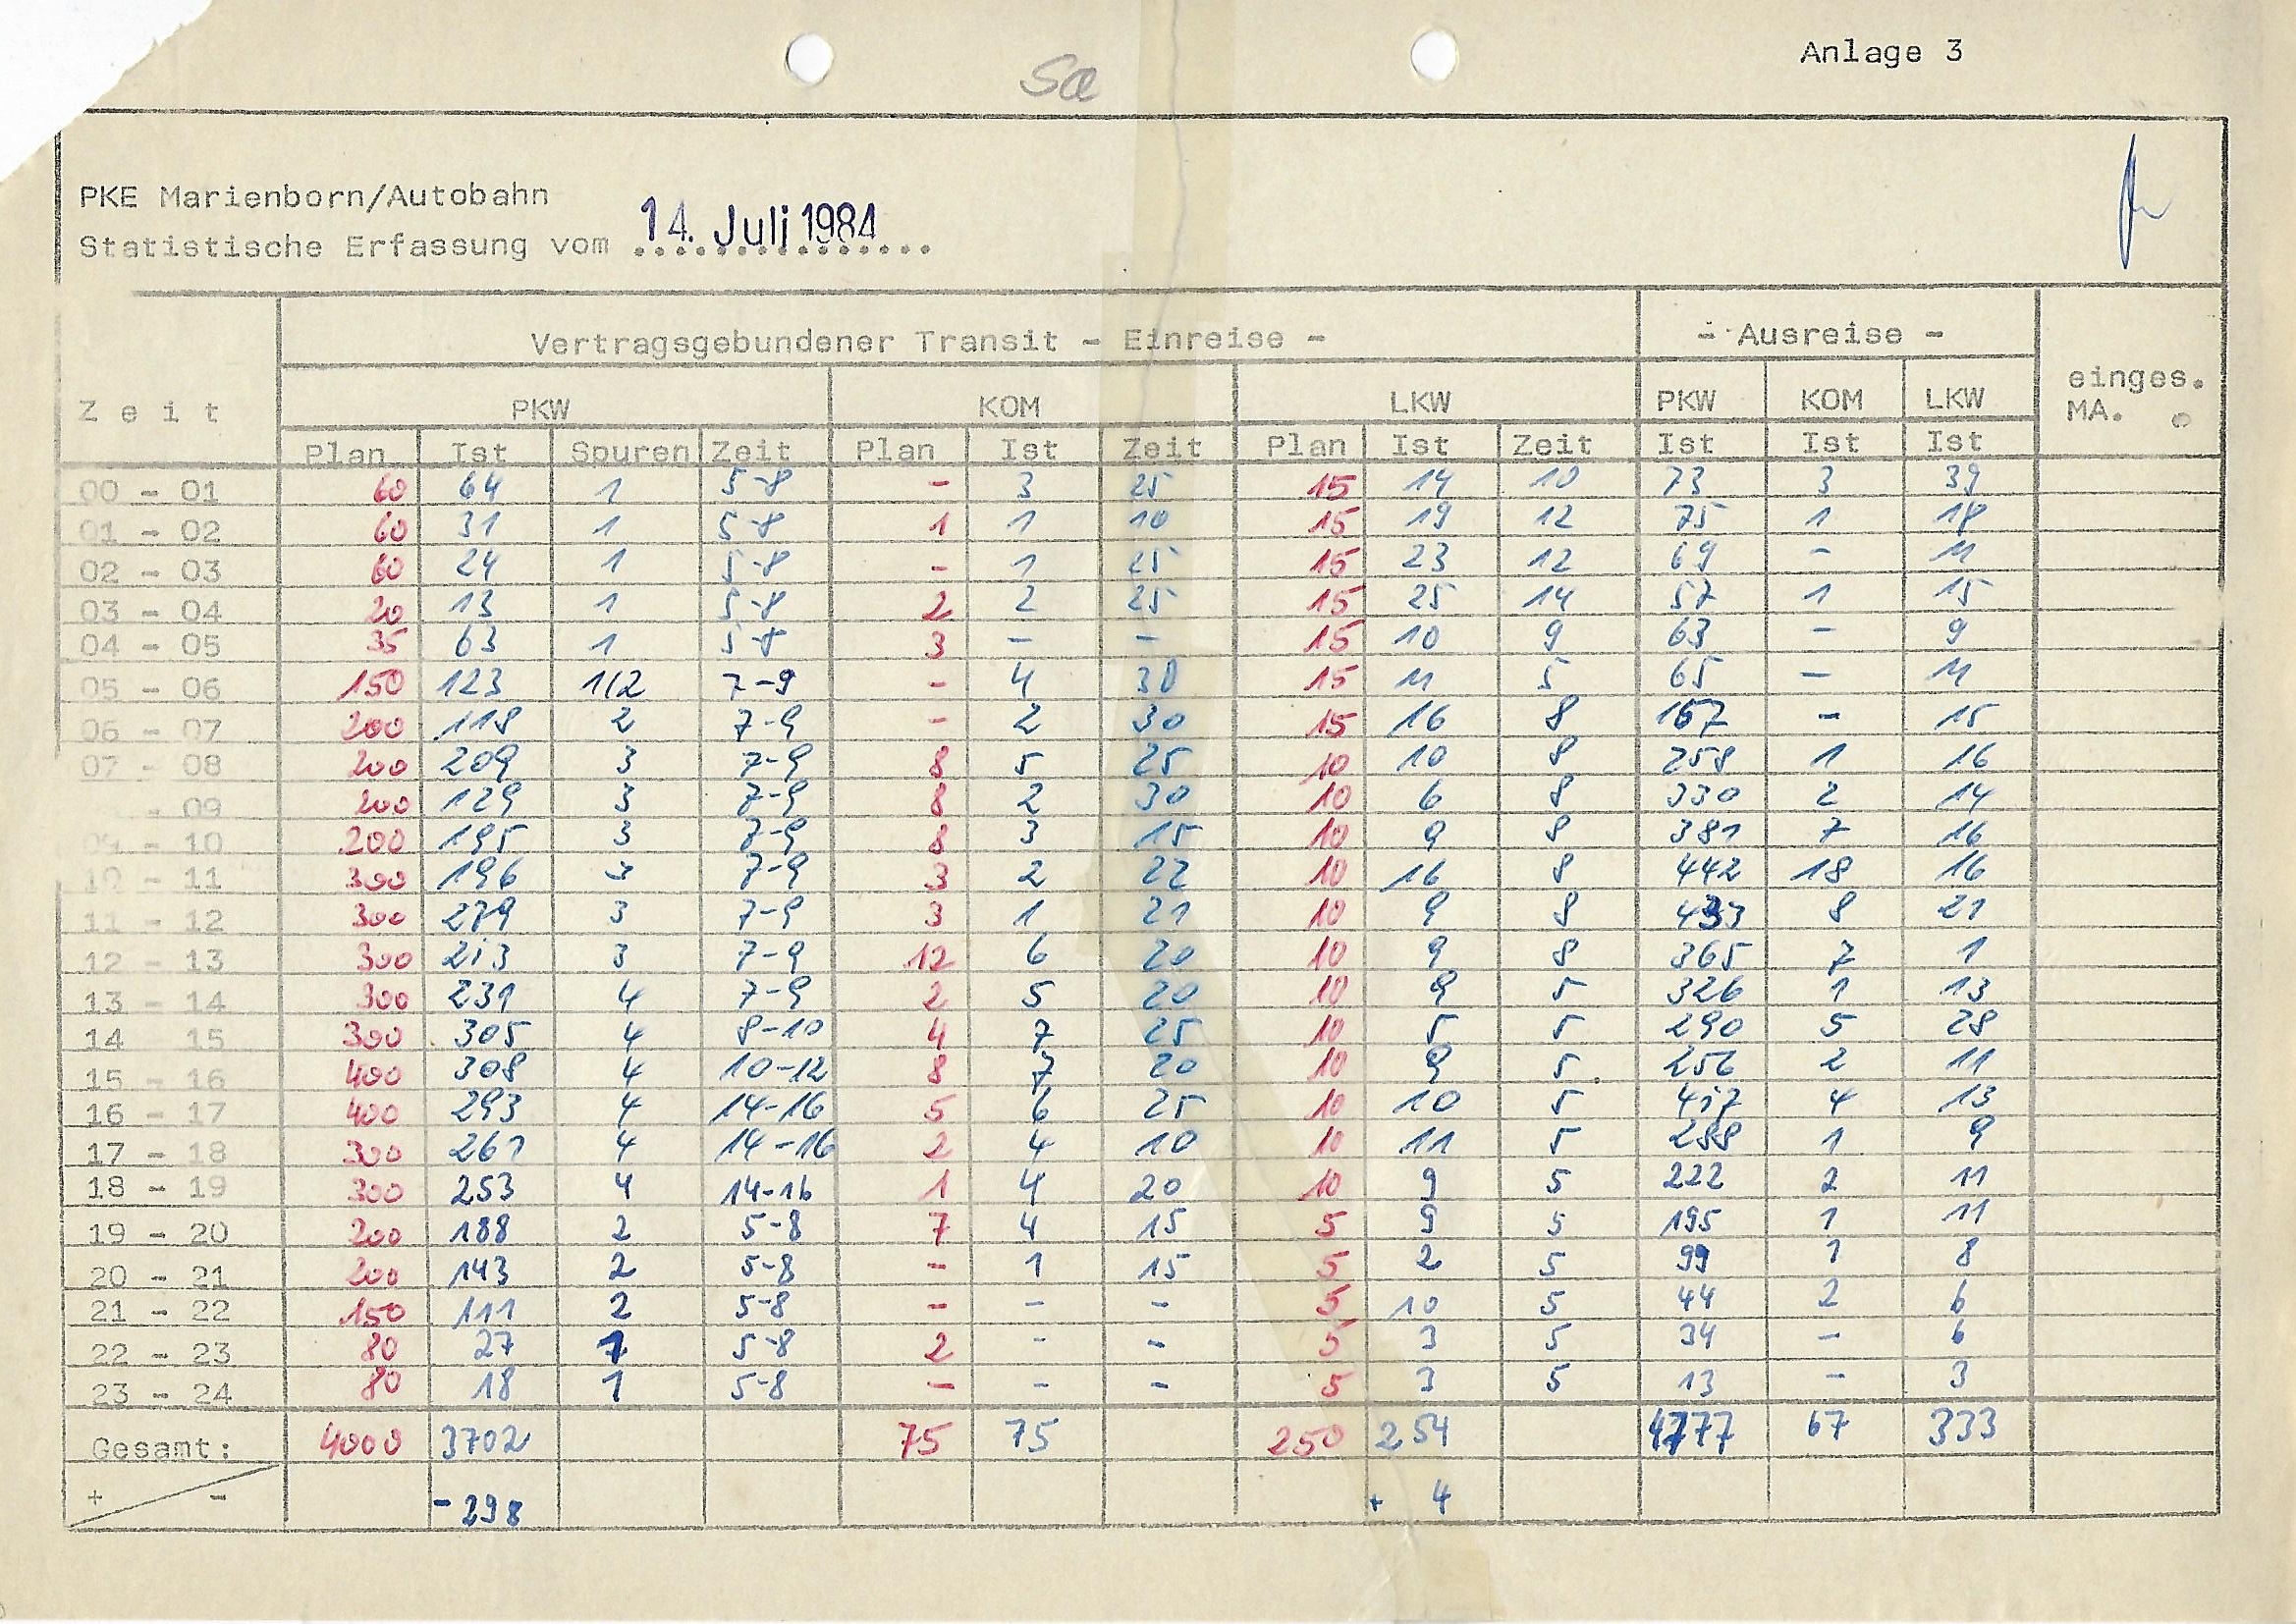 Sa
Anlage 3
PKE Marienborn/Autobahn
Statistische Erfassung vom 14. Juli 1984
Vertragsgebundener Transit - Einreise - - Ausreise -
Zeit PKW KOM LKW PKW KOM LKW einges. MA.
Plan Ist Spuren Zeit Plan Ist Zeit Plan Ist Zeit Ist Ist Ist
00 - 01 60 64 1 5-8 - 3 25 15 14 10 73 3 39
01 - 02 60 31 1 5-8 1 1 10 15 19 12 75 1 18
02 - 03 60 24 1 5-8 - 1 25 15 23 12 69 - 11
03 - 04 20 13 1 5-8 2 2 25 15 25 14 57 1 15
04 - 05 35 63 1 5-8 3 - - 15 10 9 63 - 9
05 - 06 150 123 1/2 7-9 - 4 30 15 11 5 65 - 11
06 - 07 200 118 2 7-9 - 2 30 15 16 8 167 - 15
07 - 08 200 209 3 7-9 8 5 25 10 10 8 258 1 16
- 09 200 129 3 7-9 8 2 30 10 6 8 330 2 14
- 10 200 195 3 7-9 8 3 15 10 9 8 381 7 16
10 - 11 300 196 3 7-9 3 2 22 10 16 8 442 18 16
11 - 12 300 279 3 7-9 3 1 21 10 9 8 433 8 21
12 - 13 300 213 3 7-9 12 6 20 10 9 8 365 7 1
13 - 14 300 231 4 7-9 2 5 20 10 9 5 326 1 13
14 15 300 305 4 8-10 4 7 25 10 5 5 290 5 28
15 - 16 400 308 4 10-12 8 7 20 10 9 5 256 2 11
16 - 17 400 293 4 14-16 5 6 25 10 10 5 417 4 13
17 - 18 300 261 4 14-16 2 4 10 10 11 5 288 1 9
18 - 19 300 253 4 14-16 1 4 20 10 9 5 222 2 11
19 - 20 200 188 2 5-8 7 4 15 5 9 5 195 1 11
20 - 21 200 143 2 5-8 - 1 15 5 2 5 99 1 8
21 - 22 150 111 2 5-8 - - - 5 10 5 44 2 6
22 - 23 80 27 1 5-8 2 - - 5 3 5 34 - 6
23 - 24 80 18 1 5-8 - - - 5 3 5 13 - 3
Gesamt: 4000 3702 75 75 250 254 4777 67 333
+ / - -298 + 4